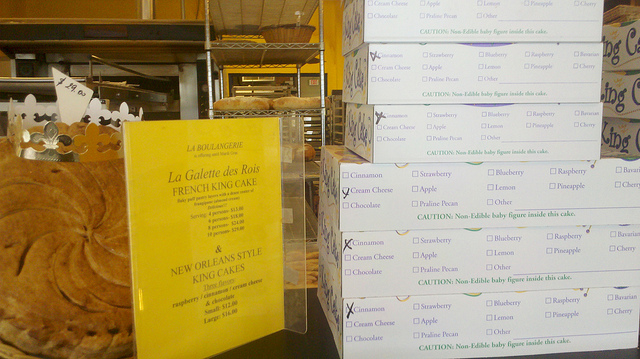 $ 29.00
LA BOULANGERIE
La Galette des Rois
FRENCH KING CAKE
&
NEW ORLEANS STYLE
KING CAKES
Three flavors
raspberry / cinnamon / cream cheese
& chocolate
Small: $12.00
Large: $16.00
Cream Cheese Apple Lemon Pineapple Cherry
Chocolate Praline Pecan Other
CAUTION: Non-Edible baby figure inside this cake.
Cinnamon Strawberry Blueberry Raspberry Bavarian
Cream Cheese Apple Lemon Pineapple Cherry
Chocolate Praline Pecan Other
CAUTION: Non-Edible baby figure inside this cake.
Cinnamon Strawberry Blueberry Raspberry Bavarian
Cream Cheese Apple Lemon Pineapple Cherry
Chocolate Praline Pecan Other
CAUTION: Non-Edible baby figure inside this cake.
Cinnamon Strawberry Blueberry Raspberry Bavari
Cream Cheese Apple Lemon Pineapple Cherry
Chocolate Praline Pecan Other
CAUTION: Non-Edible baby figure inside this cake.
Cinnamon Strawberry Blueberry Raspberry Bavarian
Cream Cheese Apple Lemon Pineapple Cherry
Chocolate Praline Pecan Other
CAUTION: Non-Edible baby figure inside this cake.
Cinnamon Strawberry Blueberry Raspberry Bavaria
Cream Cheese Apple Lemon Pineapple Cherry
Chocolate Praline Pecan Other
CAUTION: Non-Edible baby figure inside this cake.
ng C
ing C
King C